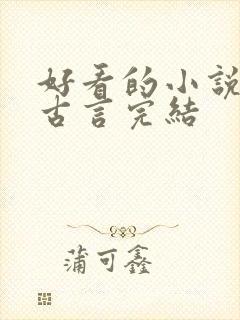 好看的小說
古言完結
蒲可鑫